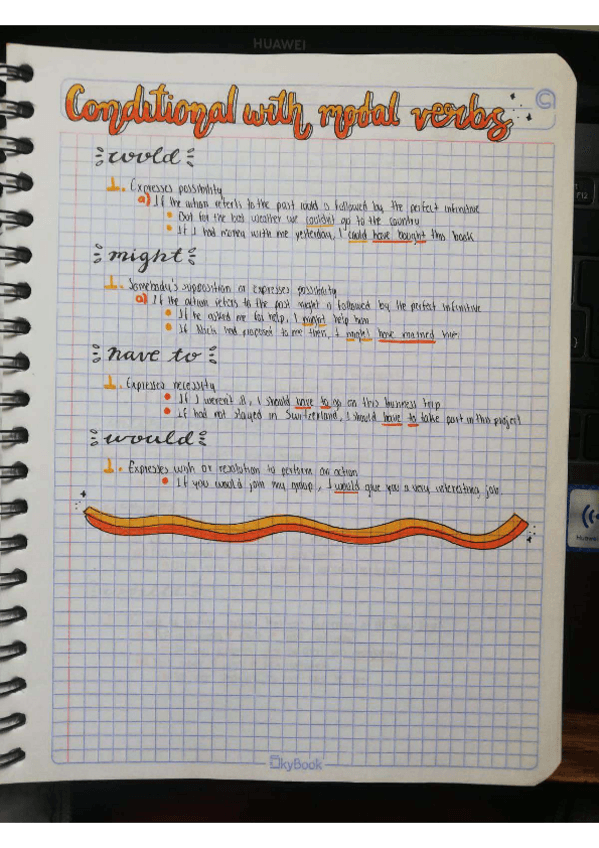 HUAWEI
Conditional with modal verbs
would
1. Expresses possibility
a) If the action refers to the past could is followed by the perfect infinitive
But for the bad weather we couldn't go to the country
If I had money with me yesterday, I could have bought this book
might
1. Somebody's supposition or expresses possibility
a) If the action refers to the past might is followed by the perfect infinitive
If he asked me for help, I might help him
If Nick had proposed to me then, I might have married him
have to
1. Expresses necessity
If I weren't ill, I should have to go on this business
If had not stayed in Switzerland, I should have to take part in this project
would
1. Expresses wish or resolution to perform an action
If you would join my group, I would give you a very interesting job.
kyBook
Huawei
F12